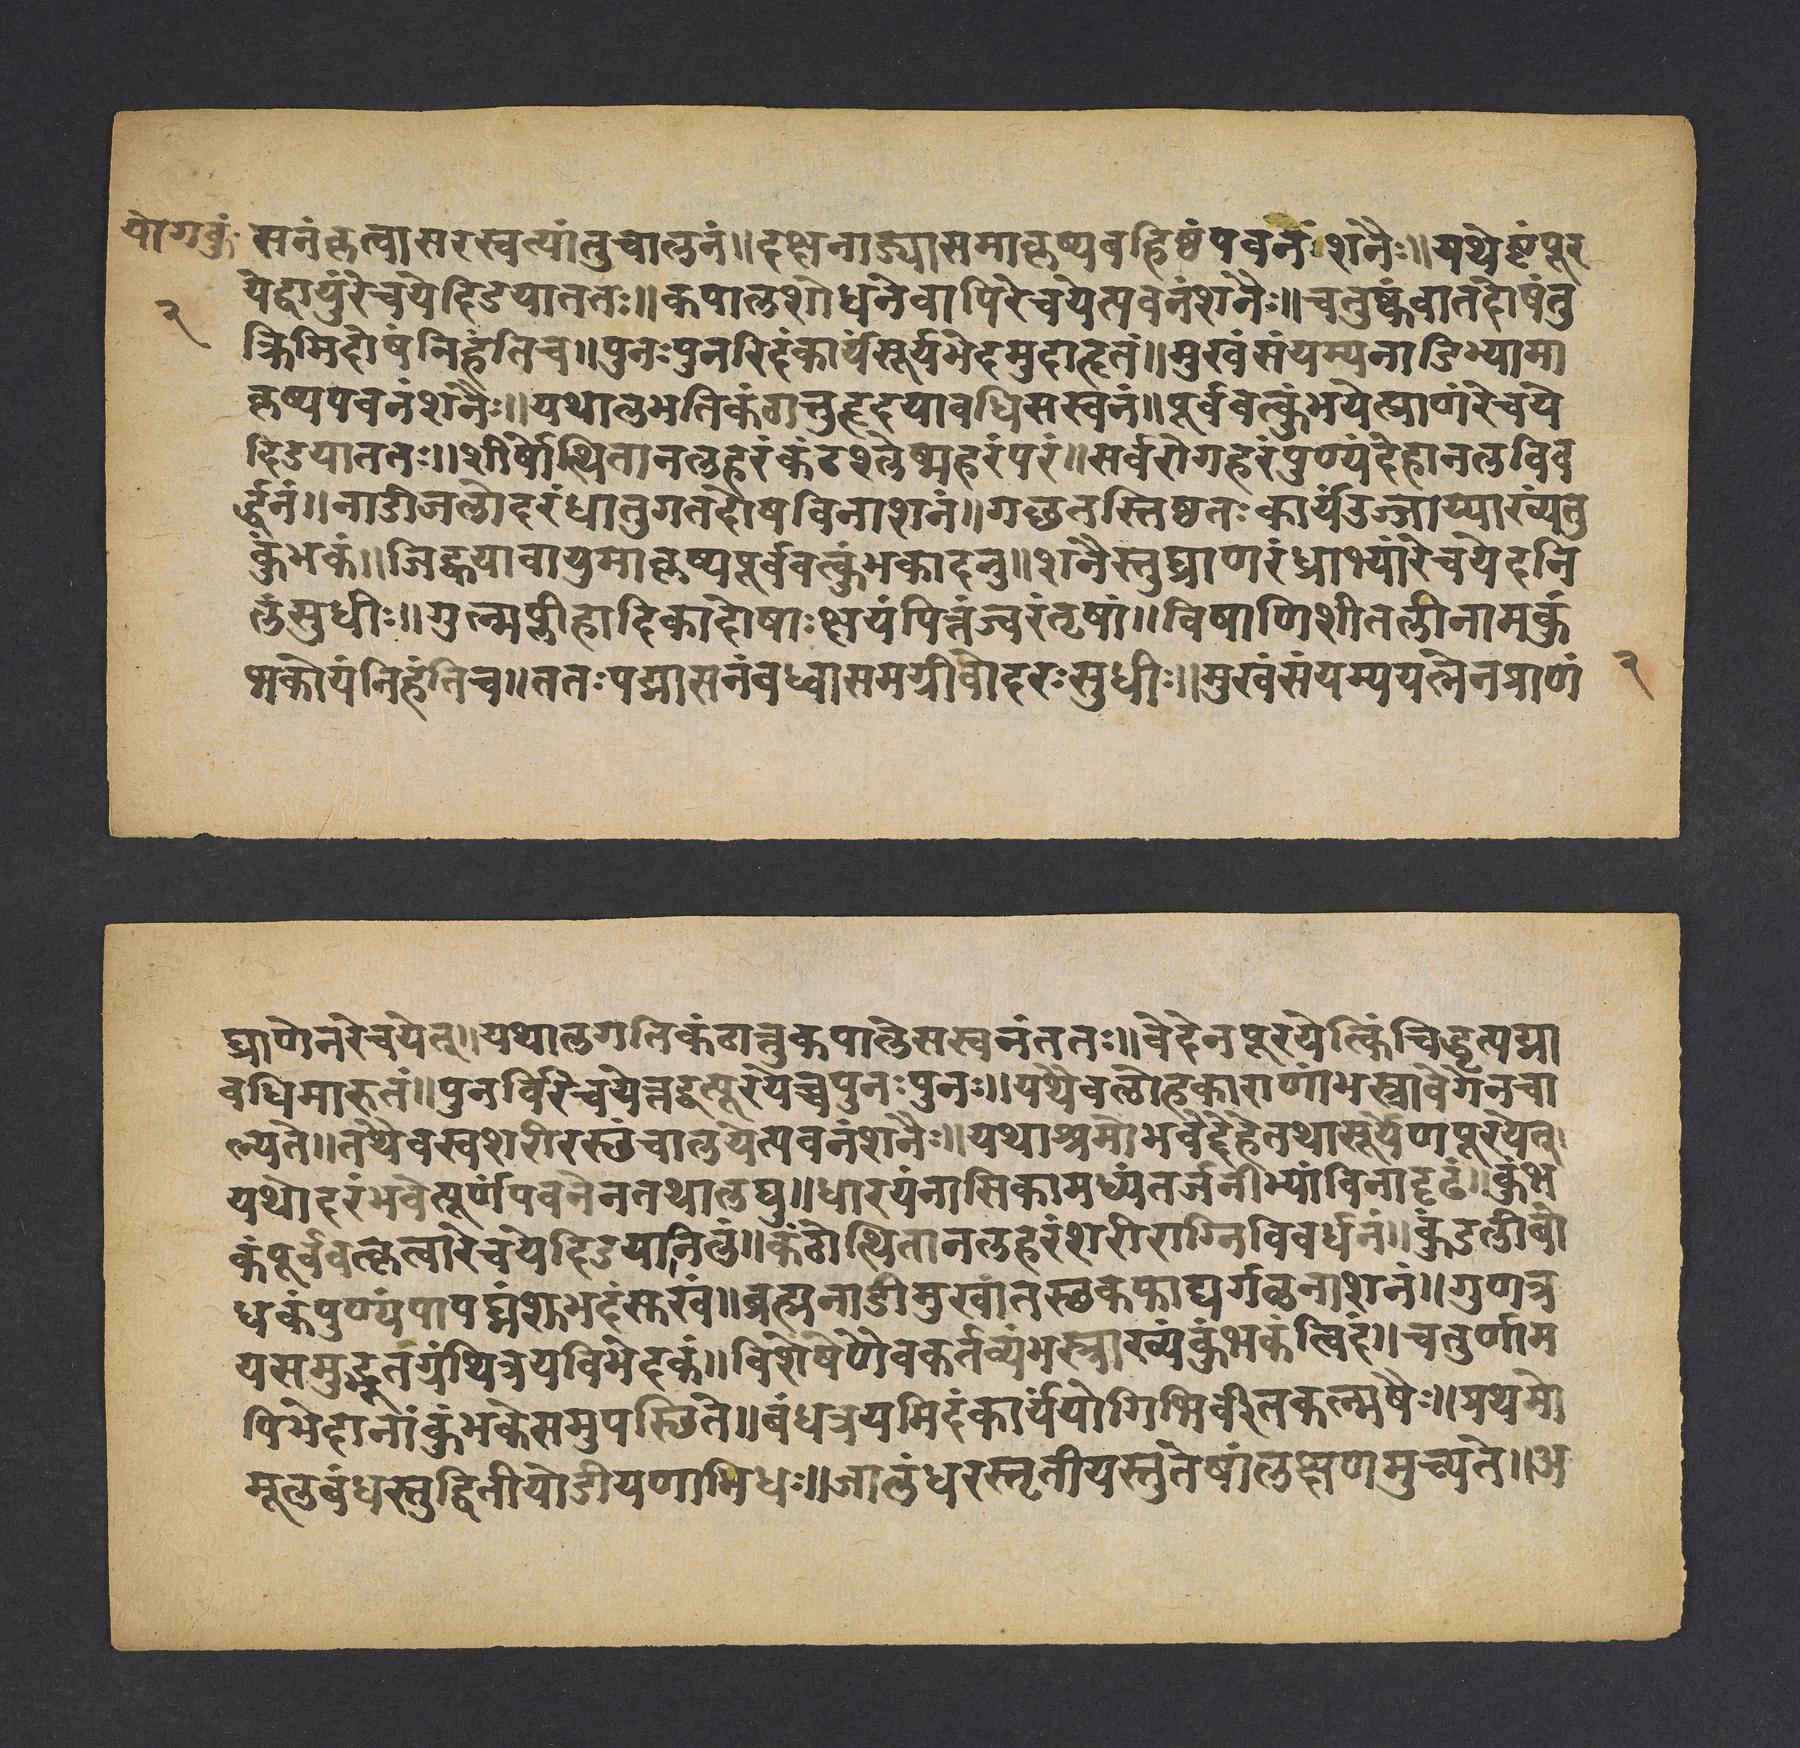 योगकुं
सनंकृत्वासरस्वत्यांतुचालनं॥दक्षनाड्यासमाकृष्यबहिष्ठंपवनंशनैः॥यथेष्टंपूर
येद्वायुंरेचयेदिडयाततः॥कपालशोधनेवापिरेचयेत्पवनंशनैः॥चतुष्कंवातदोषंतु
२
क्रिमिदोषंनिहंतिच॥पुनःपुनरिदंकार्यंसूर्यभेदमुदाहृतं॥मुखंसंयम्यनाडिभ्यामा
कृष्यपवनंशनैः॥यथालभतिकंठात्तुहृदयावधिसस्वनं॥पूर्ववत्कुंभयेत्प्राणंरेचये
दिडयाततः॥शीर्षोत्थितानलहरंकंठश्लेष्महरंपरं॥सर्वरोगहरंपुण्यंदेहानलविव
र्द्धनं॥नाडीजलोदरंधातुगतदोषविनाशनं॥गछतस्तिष्ठतःकार्यंउज्जाय्याख्यंतु
कुंभकं॥जिह्वयावायुमाकृष्यपूर्ववत्कुंभकादनु॥शनैस्तुघ्राणरंध्राभ्यांरेचयेदनि
लंसुधीः॥गुल्मप्लीहादिकादोषाःक्षयंपित्तंज्वरंतृषां॥विषाणिशीतलीनामकुं
भकोयंनिहंतिच॥ततःपद्मासनंबध्वासमग्रीवोदरःसुधीः॥मुखंसंयम्ययत्नेनप्राणं
२
घ्राणेनरेचयेत्॥यथालगतिकंठात्तुकपालेसस्वनंततः॥वेदेनपूरयेत्किंचिद्धृत्पद्मा
वधिमारुतं॥पुनर्विरेचयेत्तद्वत्पूरयेच्चपुनःपुनः॥यथैवलोहकाराणांभस्त्रावेगेनचा
ल्यते॥तथैवस्वशरीरस्छंचालयेत्पवनंशनैः॥यथाश्रमोभवेद्देहेतथासूर्येणपूरयेत्
यथोदरंभवेत्पूर्णंपवनेनतथालघु॥धारयंनासिकामध्यंतर्जनीभ्यांविनादृढं॥कुंभ
कंपूर्ववत्कृत्वारेचयेदिडयानिलं॥कंठोत्थितानलहरंशरीराग्निविवर्धनं॥कुंडलीबो
धकंपुण्यंपापघ्नंशुभदंसुखं॥ब्रह्मनाडीमुखांतस्छकफाद्यर्गळनाशनं॥गुणत्र
यसमुद्भूतग्रंथित्रयविभेदकं॥विशेषेणैवकर्तव्यंभस्त्राख्यंकुंभकंत्विदं॥चतुर्णाम
पिभेदानांकुंभकेसमुपस्छिते॥बंधत्रयमिदंकार्यंयोगिभिर्वीतकल्मषैः॥प्रथमो
मूलबंधस्तुद्वितीयोडीयणाभिधः॥जालंधरस्तृतीयस्तुतेषांलक्षणमुच्यते॥अ